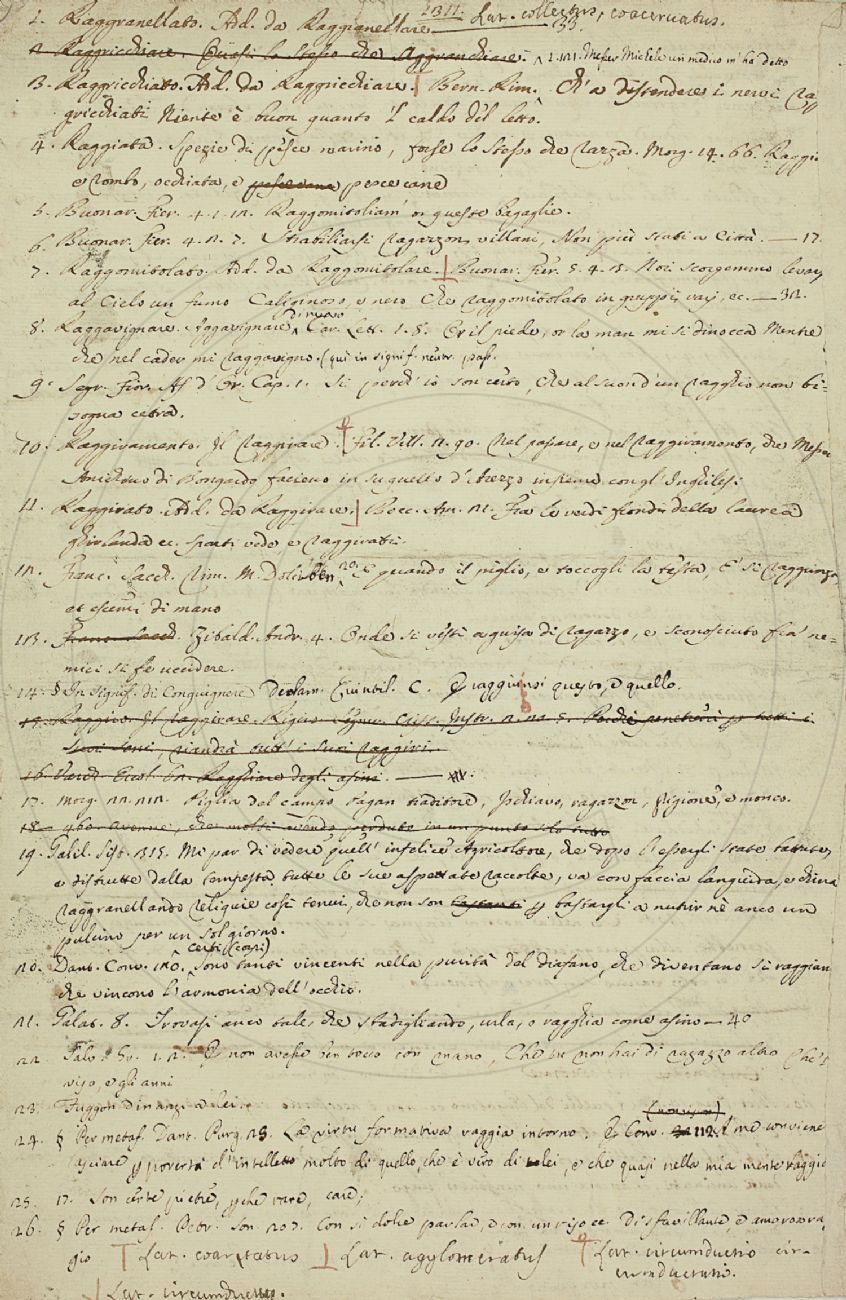 1. Raggranellato. Ad. da Raggranellare. Lat. collectus, coacervatus.
2. Raggricchiare. Quasi lo stesso che Aggranchiare. Messer Michele un medico m'ha detto
3. Raggricchiato. Ad. da Raggricchiare. Bern. Rim. Ch'a distendere i nervi rag
gricchiati Niente è buon quanto 'l caldo del letto.
4. Raggiata. Spezie di pesce marino, forse lo stesso che razza. Morg. 14. 66. Raggia
e rombo, occhiata, e pesce cane
5. Buonar. Fier. 4. 1. 12. Raggomitoliam' or queste bagaglie.
6. Buonar. Fier. 4. 2. 7. Strabiliarsi ragazzon villani, Non più stati a Città. — 17.
7. Raggomitolato. Ad. da Raggomitolare. Buonar. Fier. 5. 4. 13. Noi scorgemmo levarsi
al Cielo un fumo Caliginoso, e nero Che raggomitolato in gruppi varj, ec. — 32.
di nuovo
8. Raggavignare. Aggavignare Car. Lett. 1. 8. Or il piede, or la man mi si dinocca Mentre
che nel cader mi raggavigno. (qui in signif. neutr. pass.
9. Segr. Fior. As. d'Or. Cap. 1. Sì perch' io son certo, che al suon d'un ragghio non bi=
sogna cetra.
10. Raggiramento. Il raggirare. Fil. Vill. 2. 90. Nel passare, e nel raggiramento, che Messer
Amichino di Bongardo facieno in su quello d'Arezzo insieme congl' Inghilesi.
11. Raggirato. Ad. da Raggirare. Bocc. Am. 12. Fra le verdi frondi della laurea
ghirlanda ec. sparti vede e raggirati.
12. Franc. Sacch. Rim. M. Dolcib. 20. E quando il piglio, e toccogli la testa, E' si raggrinza
et escemi di mano
13. Franc. Sacch. Zibald. Andr. 4. Onde si vestì a guisa di ragazzo, e sconosciuto fra' ne=
mici si fe uccidere.
14. § In signif. di Congiugnere Declam. Quintil. C. E raggiunsi questo, e quello.
15. Raggiro. Il raggirare. i
suoi seni, riandrà tutt' i suoi raggiri.
16. Ragghiare degli asini. —
17. Morg. 22. 212. Piglia del campo pagan traditore, Ischiavo, ragazzon, prigione, e monco.
18. avvenne, che molti avendo perduto in un punto solo tutto
19. Galil. Sist. 315. Mi par di vedere quell' infelice Agricoltore, che dopo l'essergli state battute,
e distrutte dalla tempesta tutte le sue aspettate raccolte, va con faccia languida, e china
raggranellando reliquie così tenui, che non son bastanti per bastargli a nutrir nè anco un
pulcino per un sol giorno.
certi (corpi)
20. Dant. Conv. 120. Sono tanti vincenti nella purità del diafano, che diventano sì raggian
che vincono l'armonia dell'occhio.
21. Galat. 8. Trovasi anco tale, che sbadigliando, urla, o ragghia come asino — 40
22. Salv. 1. 2. E non avessi ben tocco con mano, Che tu non hai di ragazzo altro Che 'l
viso, e gli anni
23. Fuggon dinanzi a lei.
24. § Per metaf. Dant. Purg. 25. La virtù formativa raggia intorno. E Conv. 112. A me conviene
lasciare per povertà d'intelletto molto di quello, che è vero di lei, e che quasi nella mia mente raggia
25. 17. Son certe pietre, perchè rare, care;
26. § Per metaf. Petr. Son. 207. Con sì dolce parlar, e con un riso ec. Disfavillante, e amoroso ra
gio Lat. coarctatus Lat. agglomeratus Lat. circumductio cir-
cumductionis.
Lat. circumductus.